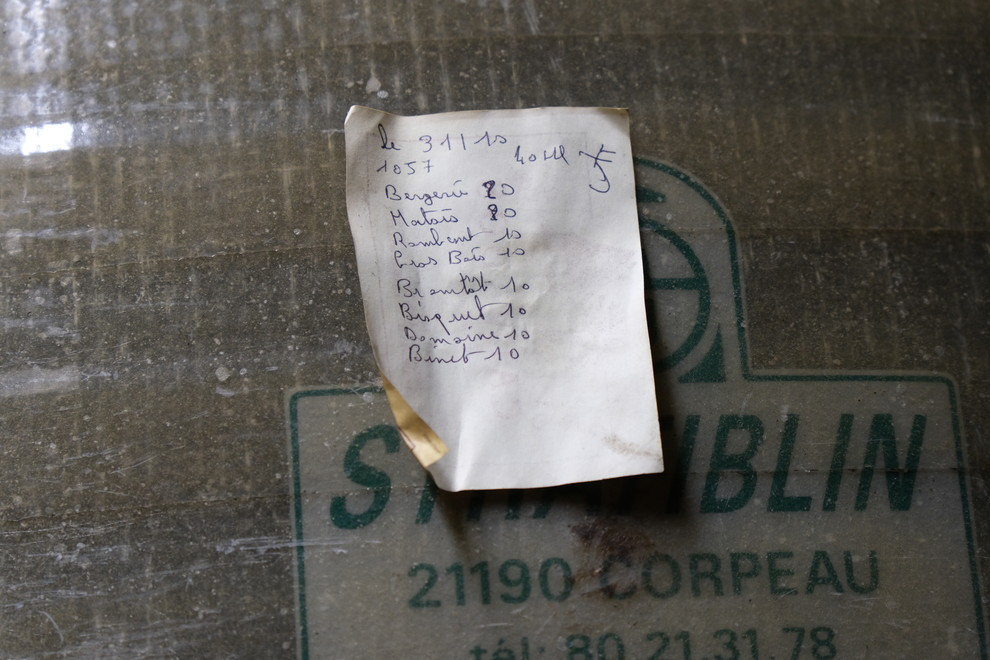 le 31 1 10
1057 40 Hl
Bergerie 20
Matois 20
Rambert 10
Gros Bois 10
Brentôt 10
Bisquet 10
Domaine 10
Binet 10
21190 CORPEAU
tél: 80.21.31.78